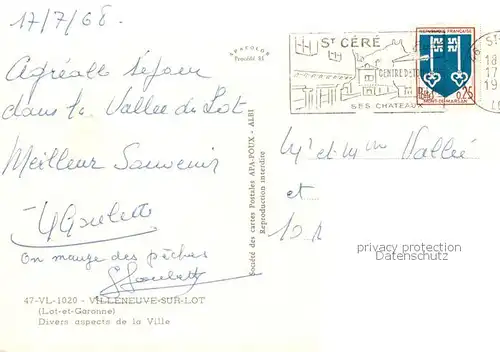 17/7/68.
Agréable séjour
dans la Vallée du Lot
Meilleur Souvenir
On mange des pêches
47-VL-1020 - VILLENEUVE-SUR-LOT
(Lot-et-Garonne)
Divers aspects de la Ville
APAPOUX
Société des cartes Postales APA-POUX - ALBI
Reproduction interdite
ST CÉRÉ
SES CHATEAUX
REPUBLIQUE FRANÇAISE
0,25
MONT-DE-MARSAN
ST-
18
17
19
Mr et Mme Vallée
et
privacy protection
Datenschutz